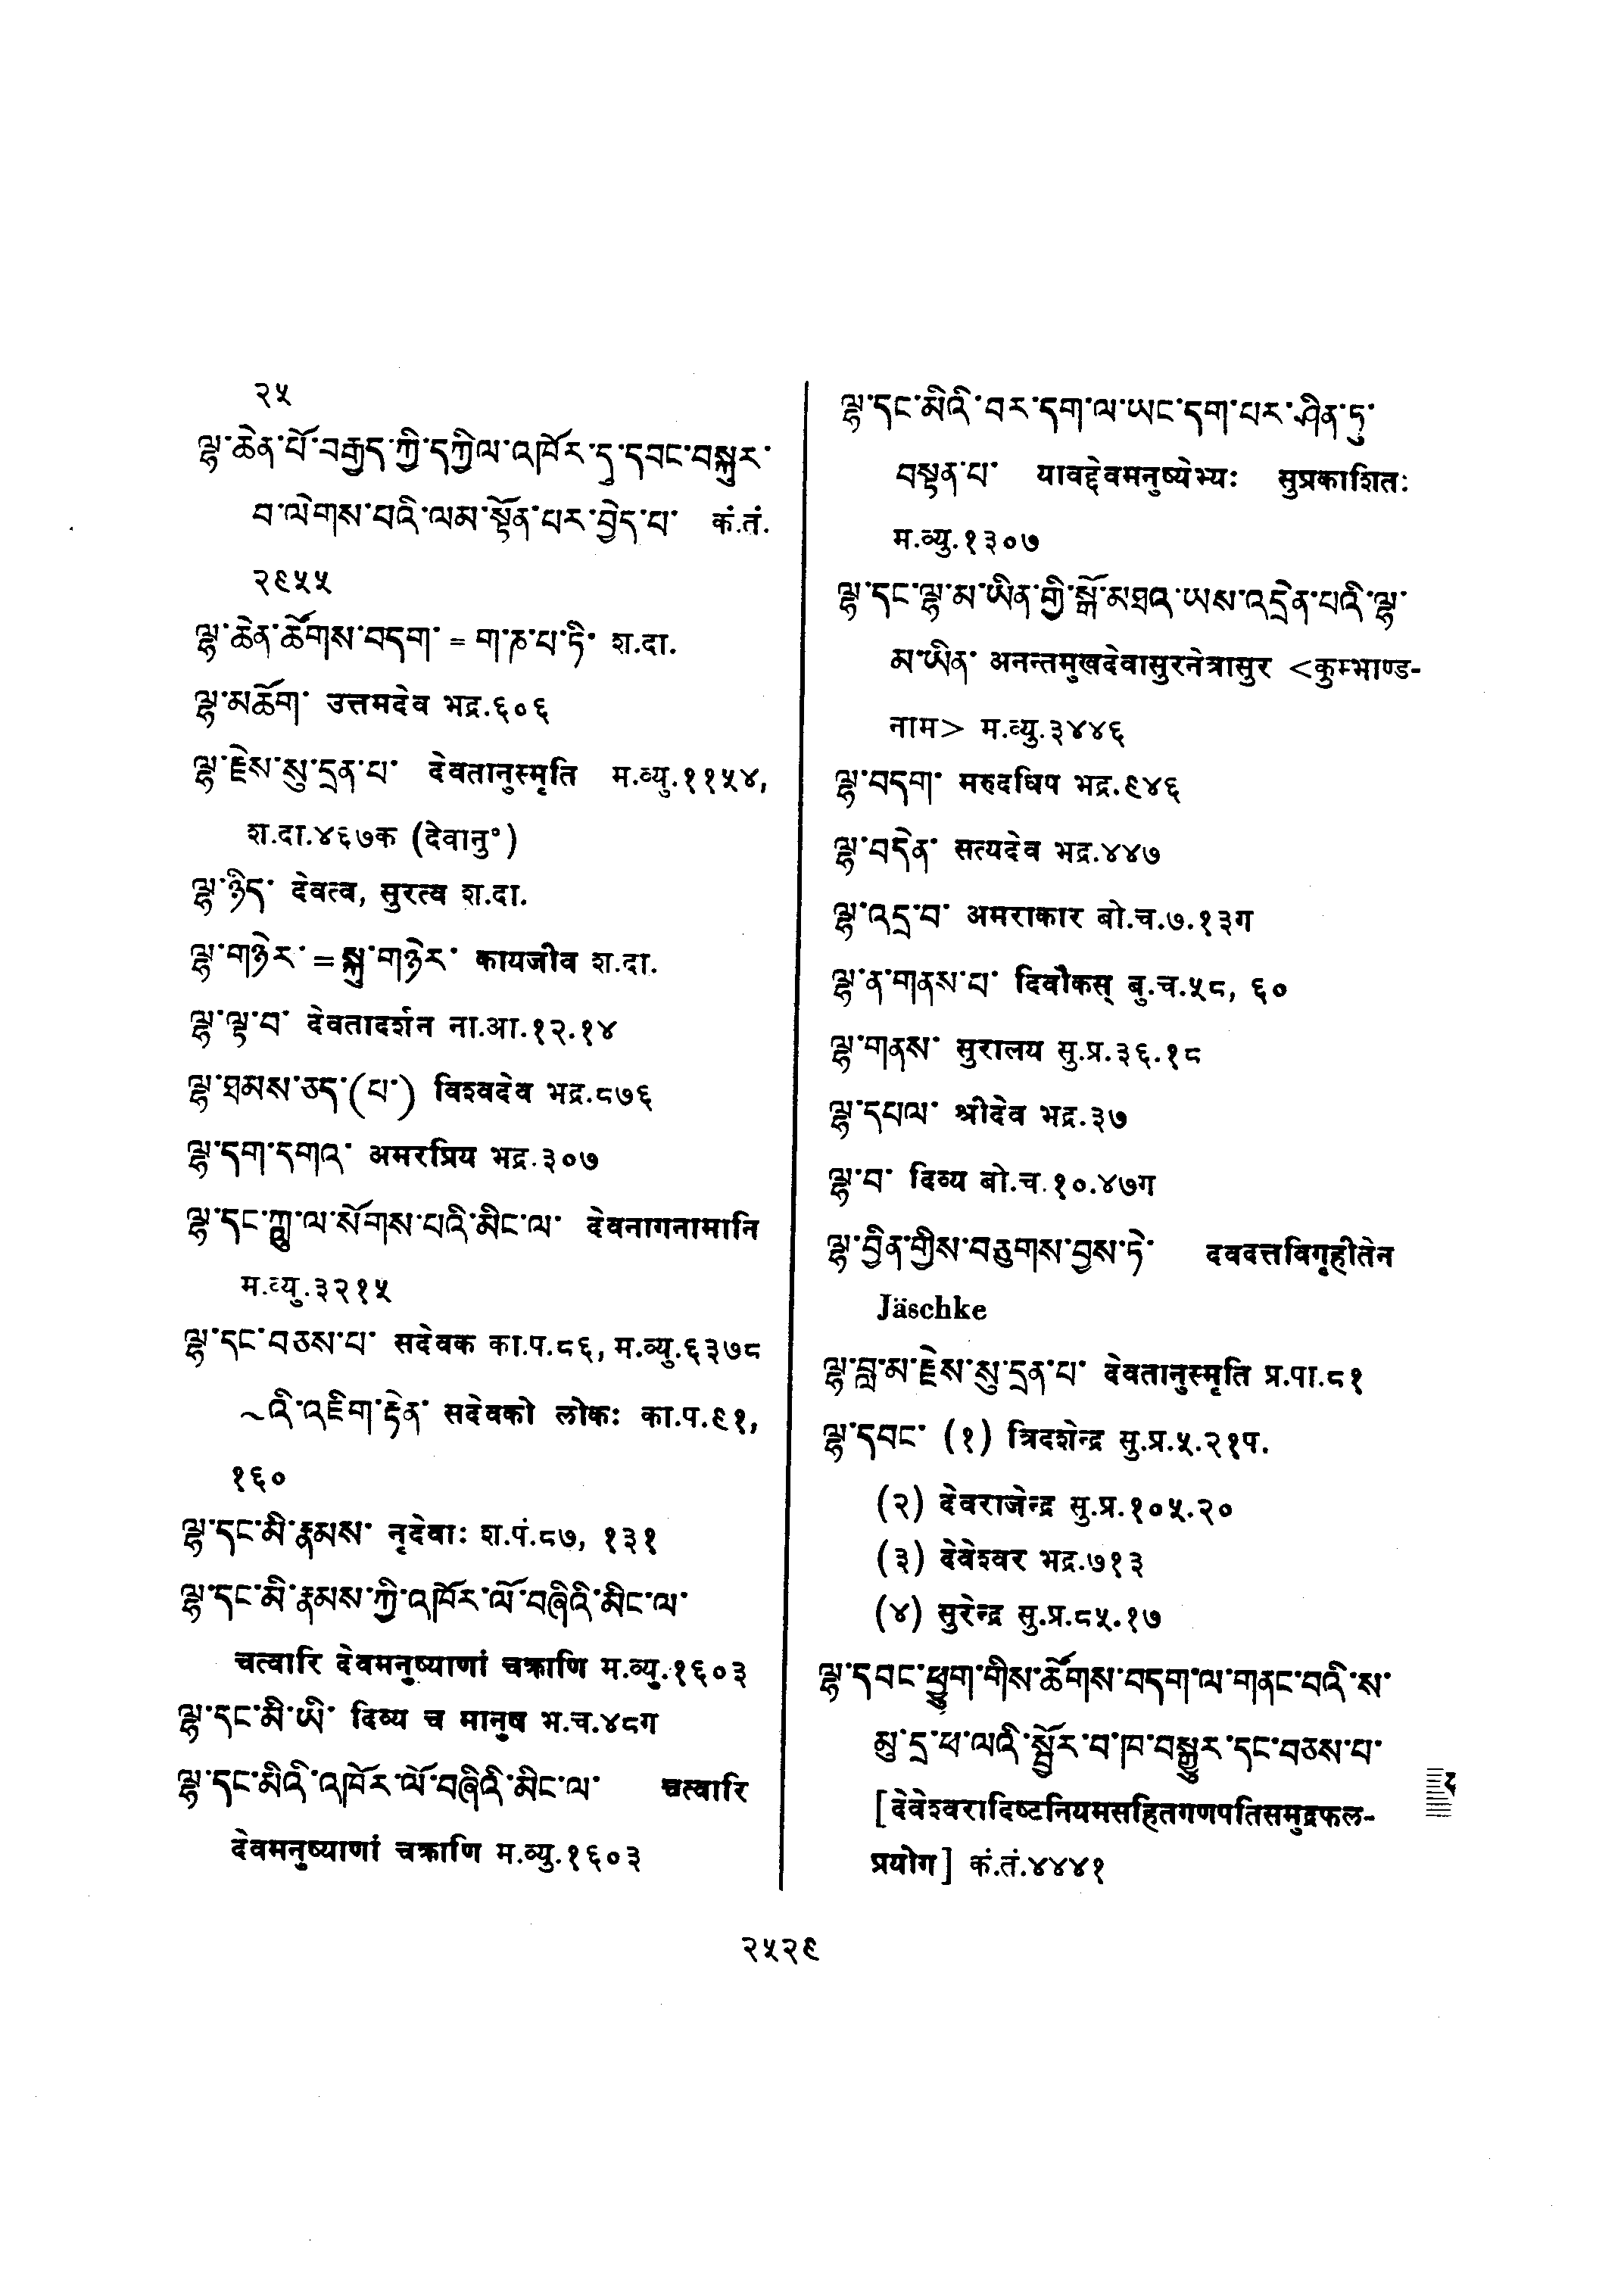 २५
ལྷ་ཆེན་པོ་བརྒྱད་ཀྱི་དཀྱིལ་འཁོར་དུ་དབང་བསྐུར་
བ་ལེགས་པའི་ལམ་སྟོན་པར་བྱེད་པ་ कं.तं.
२९५५
ལྷ་ཆེན་ཚོགས་བདག་ = ག་ཎ་པ་ཏི་ श.दा.
ལྷ་མཆོག་ उत्तमदेव भद्र.६०६
ལྷ་རྗེས་སུ་དྲན་པ་ देवतानुस्मृति म.व्यु.११५४,
श.दा.४६७क (देवानु°)
ལྷ་ཉིད་ देवत्व, सुरत्व श.दा.
ལྷ་གཉེར་ = སྐུ་གཉེར་ कायजीव श.दा.
ལྷ་ལྟ་བ་ देवतादर्शन ना.आ.१२.१४
ལྷ་ཐམས་ཅད་(པ་) विश्वदेव भद्र.८७६
ལྷ་དག་དགའ་ अमरप्रिय भद्र.३०७
ལྷ་དང་ཀླུ་ལ་སོགས་པའི་མིང་ལ་ देवनागनामानि
म.व्यु.३२१५
ལྷ་དང་བཅས་པ་ सदेवक का.प.८६, म.व्यु.६३७८
~འི་འཇིག་རྟེན་ सदेवको लोकः का.प.९१,
१६०
ལྷ་དང་མི་རྣམས་ नृदेवाः श.पं.८७, १३१
ལྷ་དང་མི་རྣམས་ཀྱི་འཁོར་ལོ་བཞིའི་མིང་ལ་
चत्वारि देवमनुष्याणां चक्राणि म.व्यु.१६०३
ལྷ་དང་མི་ཡི་ दिव्य च मानुष भ.च.४८ग
ལྷ་དང་མིའི་འཁོར་ལོ་བཞིའི་མིང་ལ་ चत्वारि
देवमनुष्याणां चक्राणि म.व्यु.१६०३
ལྷ་དང་མིའི་བར་དག་ལ་ཡང་དག་པར་ཤིན་ཏུ་
བསྟན་པ་ यावद्देवमनुष्येभ्यः सुप्रकाशितः
म.व्यु.१३०७
ལྷ་དང་ལྷ་མ་ཡིན་གྱི་སྒོ་མཐའ་ཡས་འདྲེན་པའི་ལྷ་
མ་ཡིན་ अनन्तमुखदेवासुरनेत्रासुर <कुम्भाण्ड-
नाम> म.व्यु.३४४६
ལྷ་བདག་ मरुदधिप भद्र.९४६
ལྷ་བདེན་ सत्यदेव भद्र.४४७
ལྷ་འདྲ་བ་ अमराकार बो.च.७.१३ग
ལྷ་ན་གནས་པ་ दिवौकस् बु.च.५८, ६०
ལྷ་གནས་ सुरालय सु.प्र.३६.१८
ལྷ་དཔལ་ श्रीदेव भद्र.३७
ལྷ་བ་ दिव्य बो.च.१०.४७ग
ལྷ་བྱིན་གྱིས་བཅུགས་བྱས་ཏེ་ दवदत्तविगृहीतेन
Jäschke
ལྷ་བླ་མ་རྗེས་སུ་དྲན་པ་ देवतानुस्मृति प्र.पा.८१
ལྷ་དབང་ (१) त्रिदशेन्द्र सु.प्र.५.२१प.
(२) देवराजेन्द्र सु.प्र.१०५.२०
(३) देवेश्वर भद्र.७१३
(४) सुरेन्द्र सु.प्र.८५.१७
ལྷ་དབང་ཕྱུག་གིས་ཚོགས་བདག་ལ་གནང་བའི་ས་
མུ་དྲ་ཕ་ལའི་སྦྱོར་བ་ཁ་བསྒྱུར་དང་བཅས་པ་
[देवेश्वरादिष्टनियमसहितगणपतिसमुद्रफल-
प्रयोग] कं.तं.४४४१
२५२९